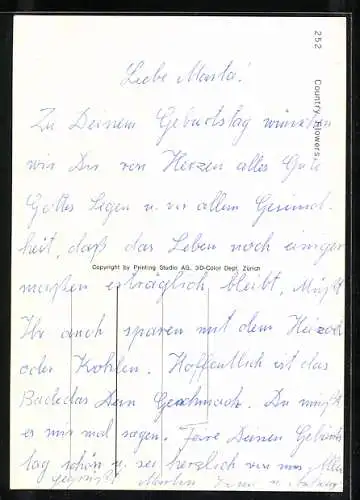 252 Country Flowers
Liebe Marta!
Zu Deinem Geburtstag wünschen
wir Dir von Herzen alles Gute
Gottes Segen u. vor allem Gesund-
heit, daß das Leben noch einiger
Copyright by Printing Studio AG, 3D-Color Dept. Zürich
maßen erträglich bleibt. Müßt
Ihr auch sparen mit dem
oder Kohlen. Hoffentlich ist das
Dein Geschmack. Du mußt
es mir mal sagen. Feire Deinen Geburts
tag schön u. sei herzlich von uns Allen
gegrüßt u.